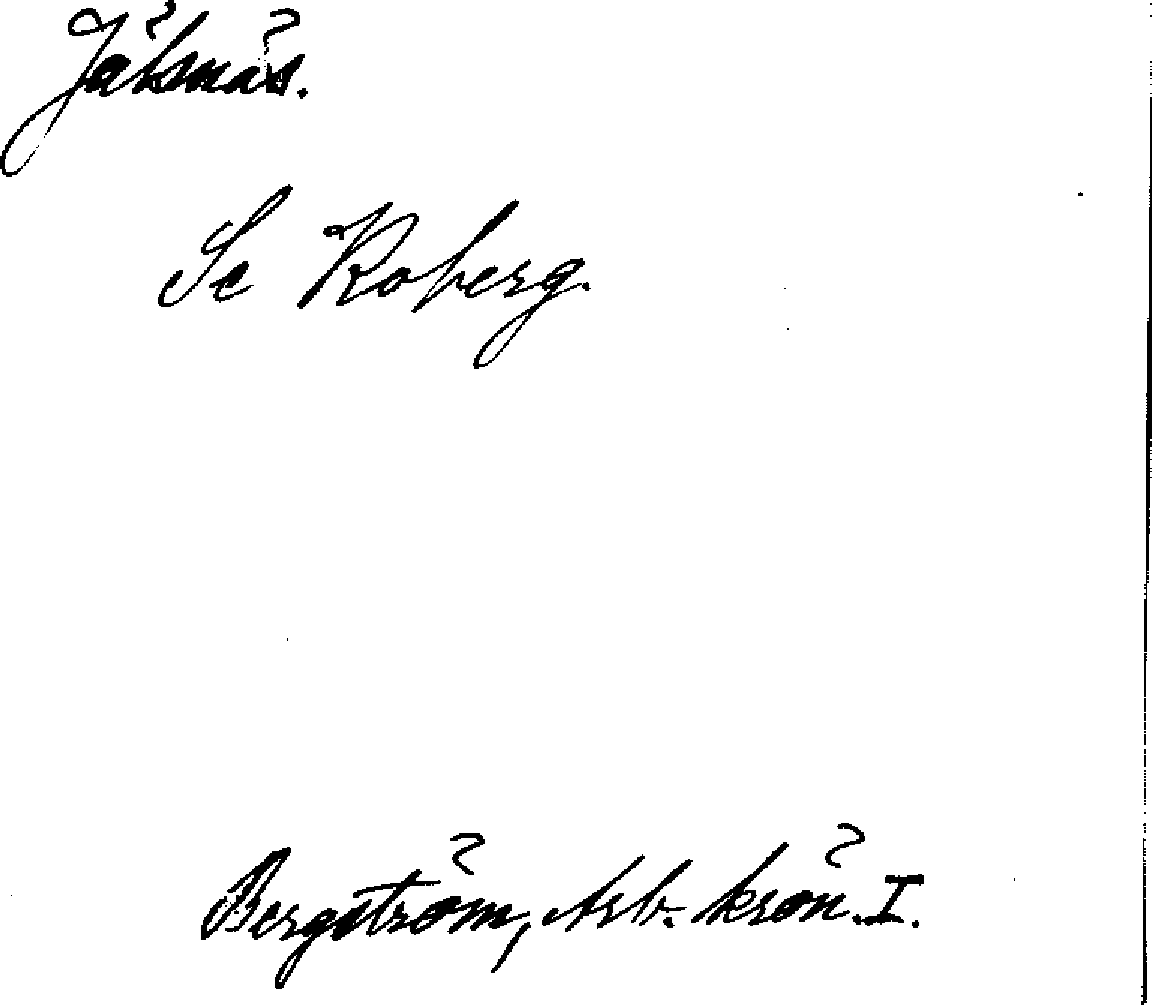 Jäksnäs.
Se Koberg.
Bergström, Arb. krön. I.